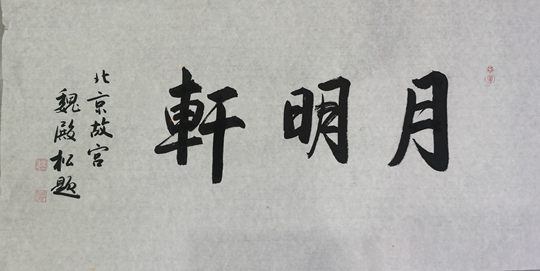 月明軒
北京故宫
魏殿松题